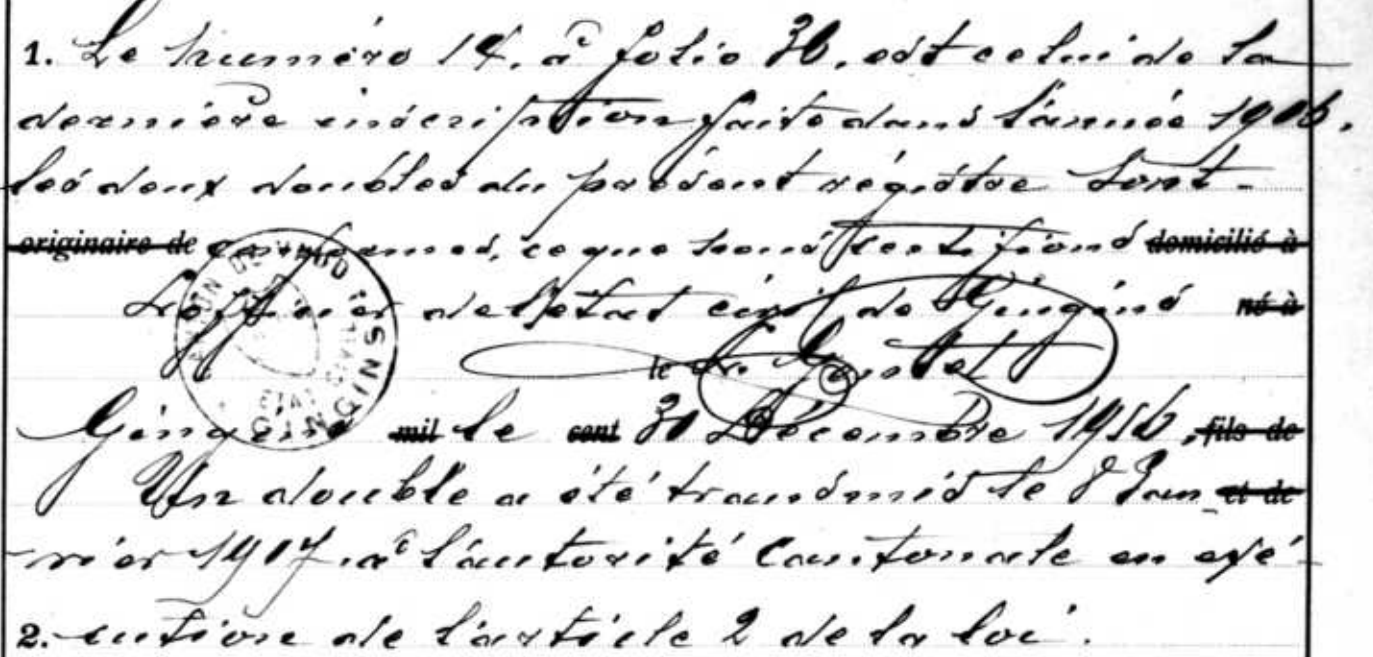 1. Le numéro 14. à folio 36. est celui de la
dernière inscription faite dans l'année 1906.
Les deux doubles du présent régistre sont
originaire de conformes, ce que nous certifions domicilié à
L'officier de l'état civil de Gingins né à
le
Gingins mil le cent 31 Décembre 1906, fils de
Un double a été transmis le 8 Jan- et de
vier 1907. à l'autorité Cantonale en exé-
2. cution de l'article 2 de la loi.
CANTON DE VAUD
ETAT CIVIL
GINGINS